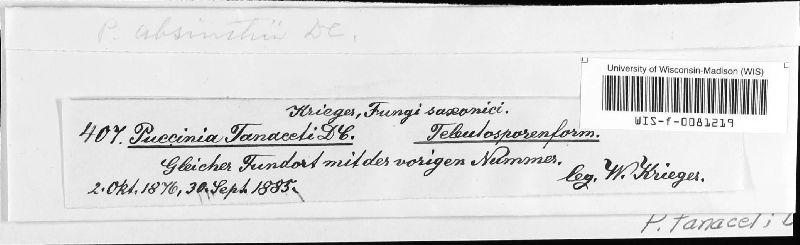 P. absinthii DC.
University of Wisconsin-Madison (WIS)
WIS-f-0081219
Krieger, Fungi saxonici.
407. Puccinia Tanaceti DC. Teleutosporenform.
Gleicher Fundort mit der vorigen Nummer.
2. Okt. 1876, 30. Sept. 1885. leg. W. Krieger.
P. Tanaceti D